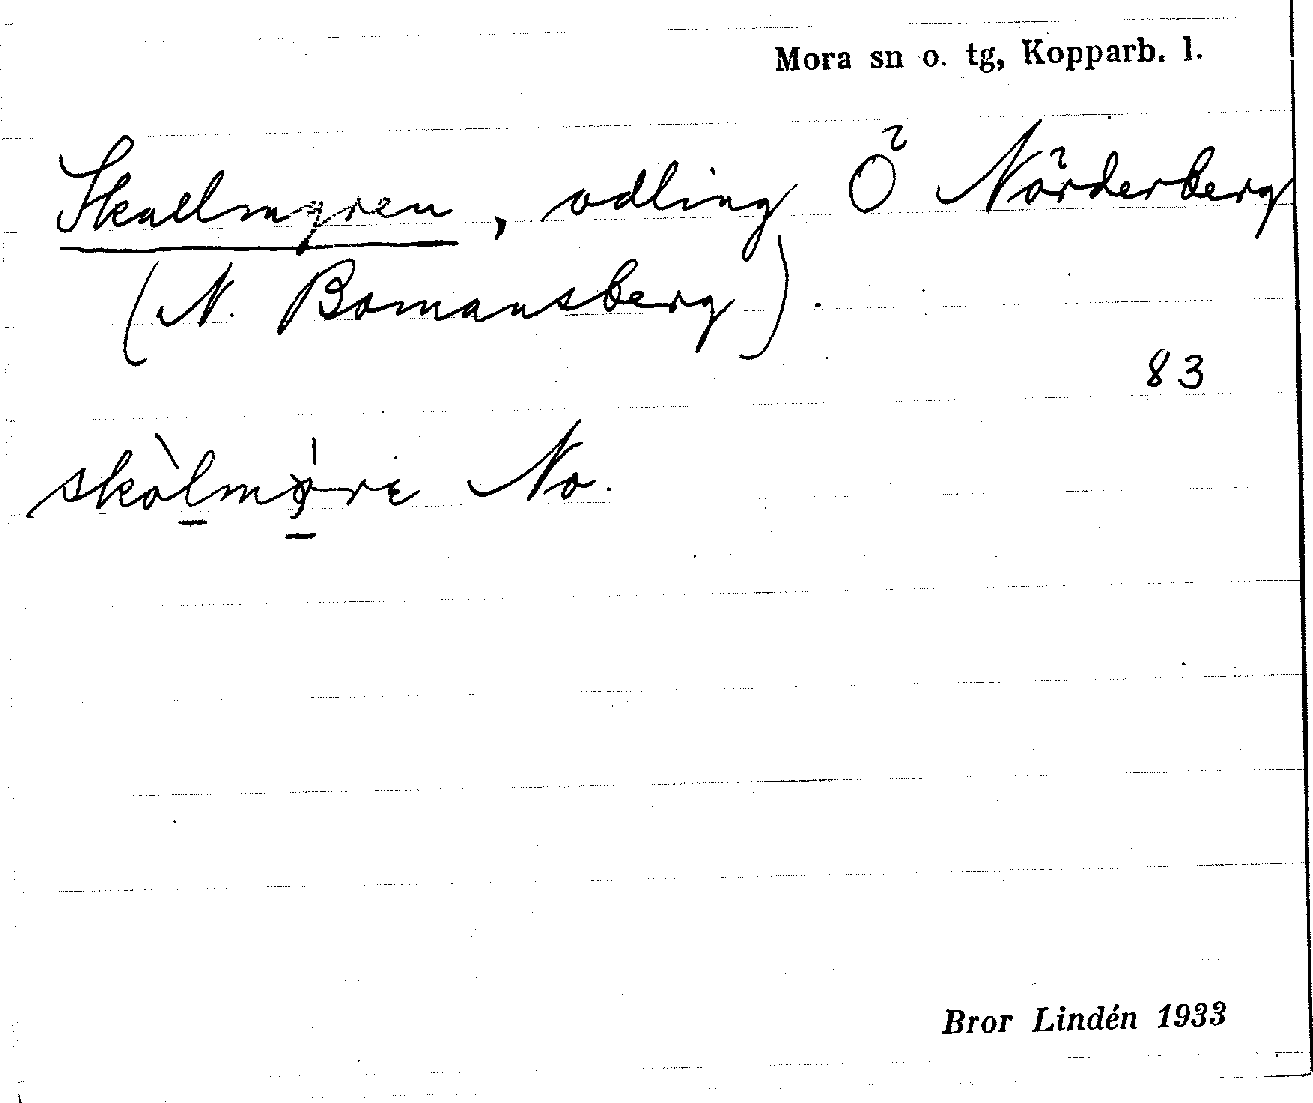 Mora sn o. tg, Kopparb. l.
Skallmyren, odling Ö Nörderberg
(N. Bomansberg).
83
No.
Bror Lindén 1933